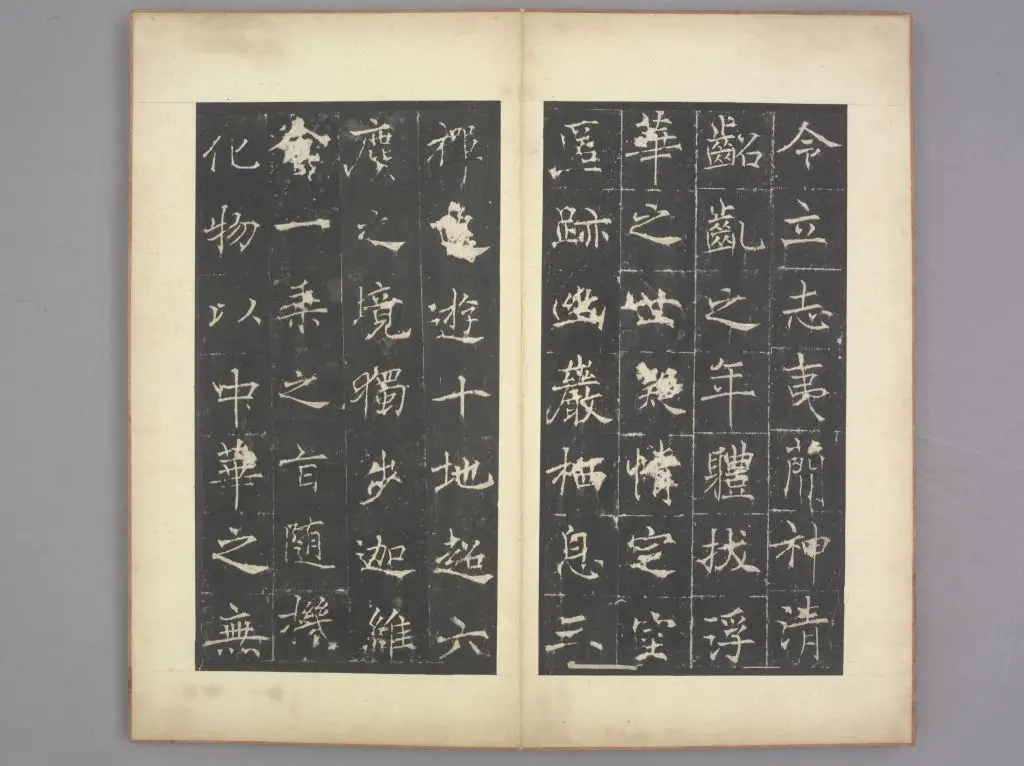 令立志夷簡神清
齠齔之年體拔浮
華之世凝情定室
匿跡幽巖栖息三
禪巡遊十地超六
塵之境獨步迦維
會一乘之旨随機
化物以中華之無